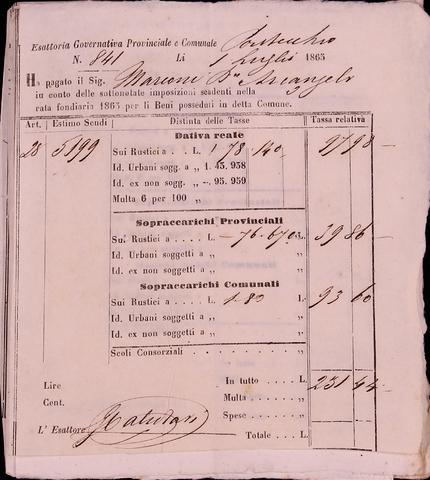 Esattoria Governativa Provinciale e Comunale Pontecchio
N. 841 Li 1 Luglio 1865
Ha pagato il Sig. Marconi Arcangelo
in conto delle sottonotate imposizioni scadenti nella
rata fondiaria 1865 per li Beni posseduti in detta Comune.
Art. Estimo Scudi Distinta delle Tasse Tassa relativa
Dativa reale
28 5199 Sui Rustici a . . L. 1 78 140 97 98
Id. Urbani sogg. a „ 1. 45. 958
Id. ex non sogg. „ —. 95. 959
Multa 6 per 100 „
Sopraccarichi Provinciali
Sui Rustici a . . . . L. — 76. 670 L. 39 86
Id. Urbani soggetti a „
Id. ex non soggetti a „
Sopraccarichi Comunali
Sui Rustici a . . . . L. 1 80 L. 93 60
Id. Urbani soggetti a „
Id. ex non soggetti a „
Scoli Consorziali . . . . . „
Lire In tutto . . L. 231 44
Cent. Multa . . . „
Spese . . . „
L' Esattore
Totale . . L.